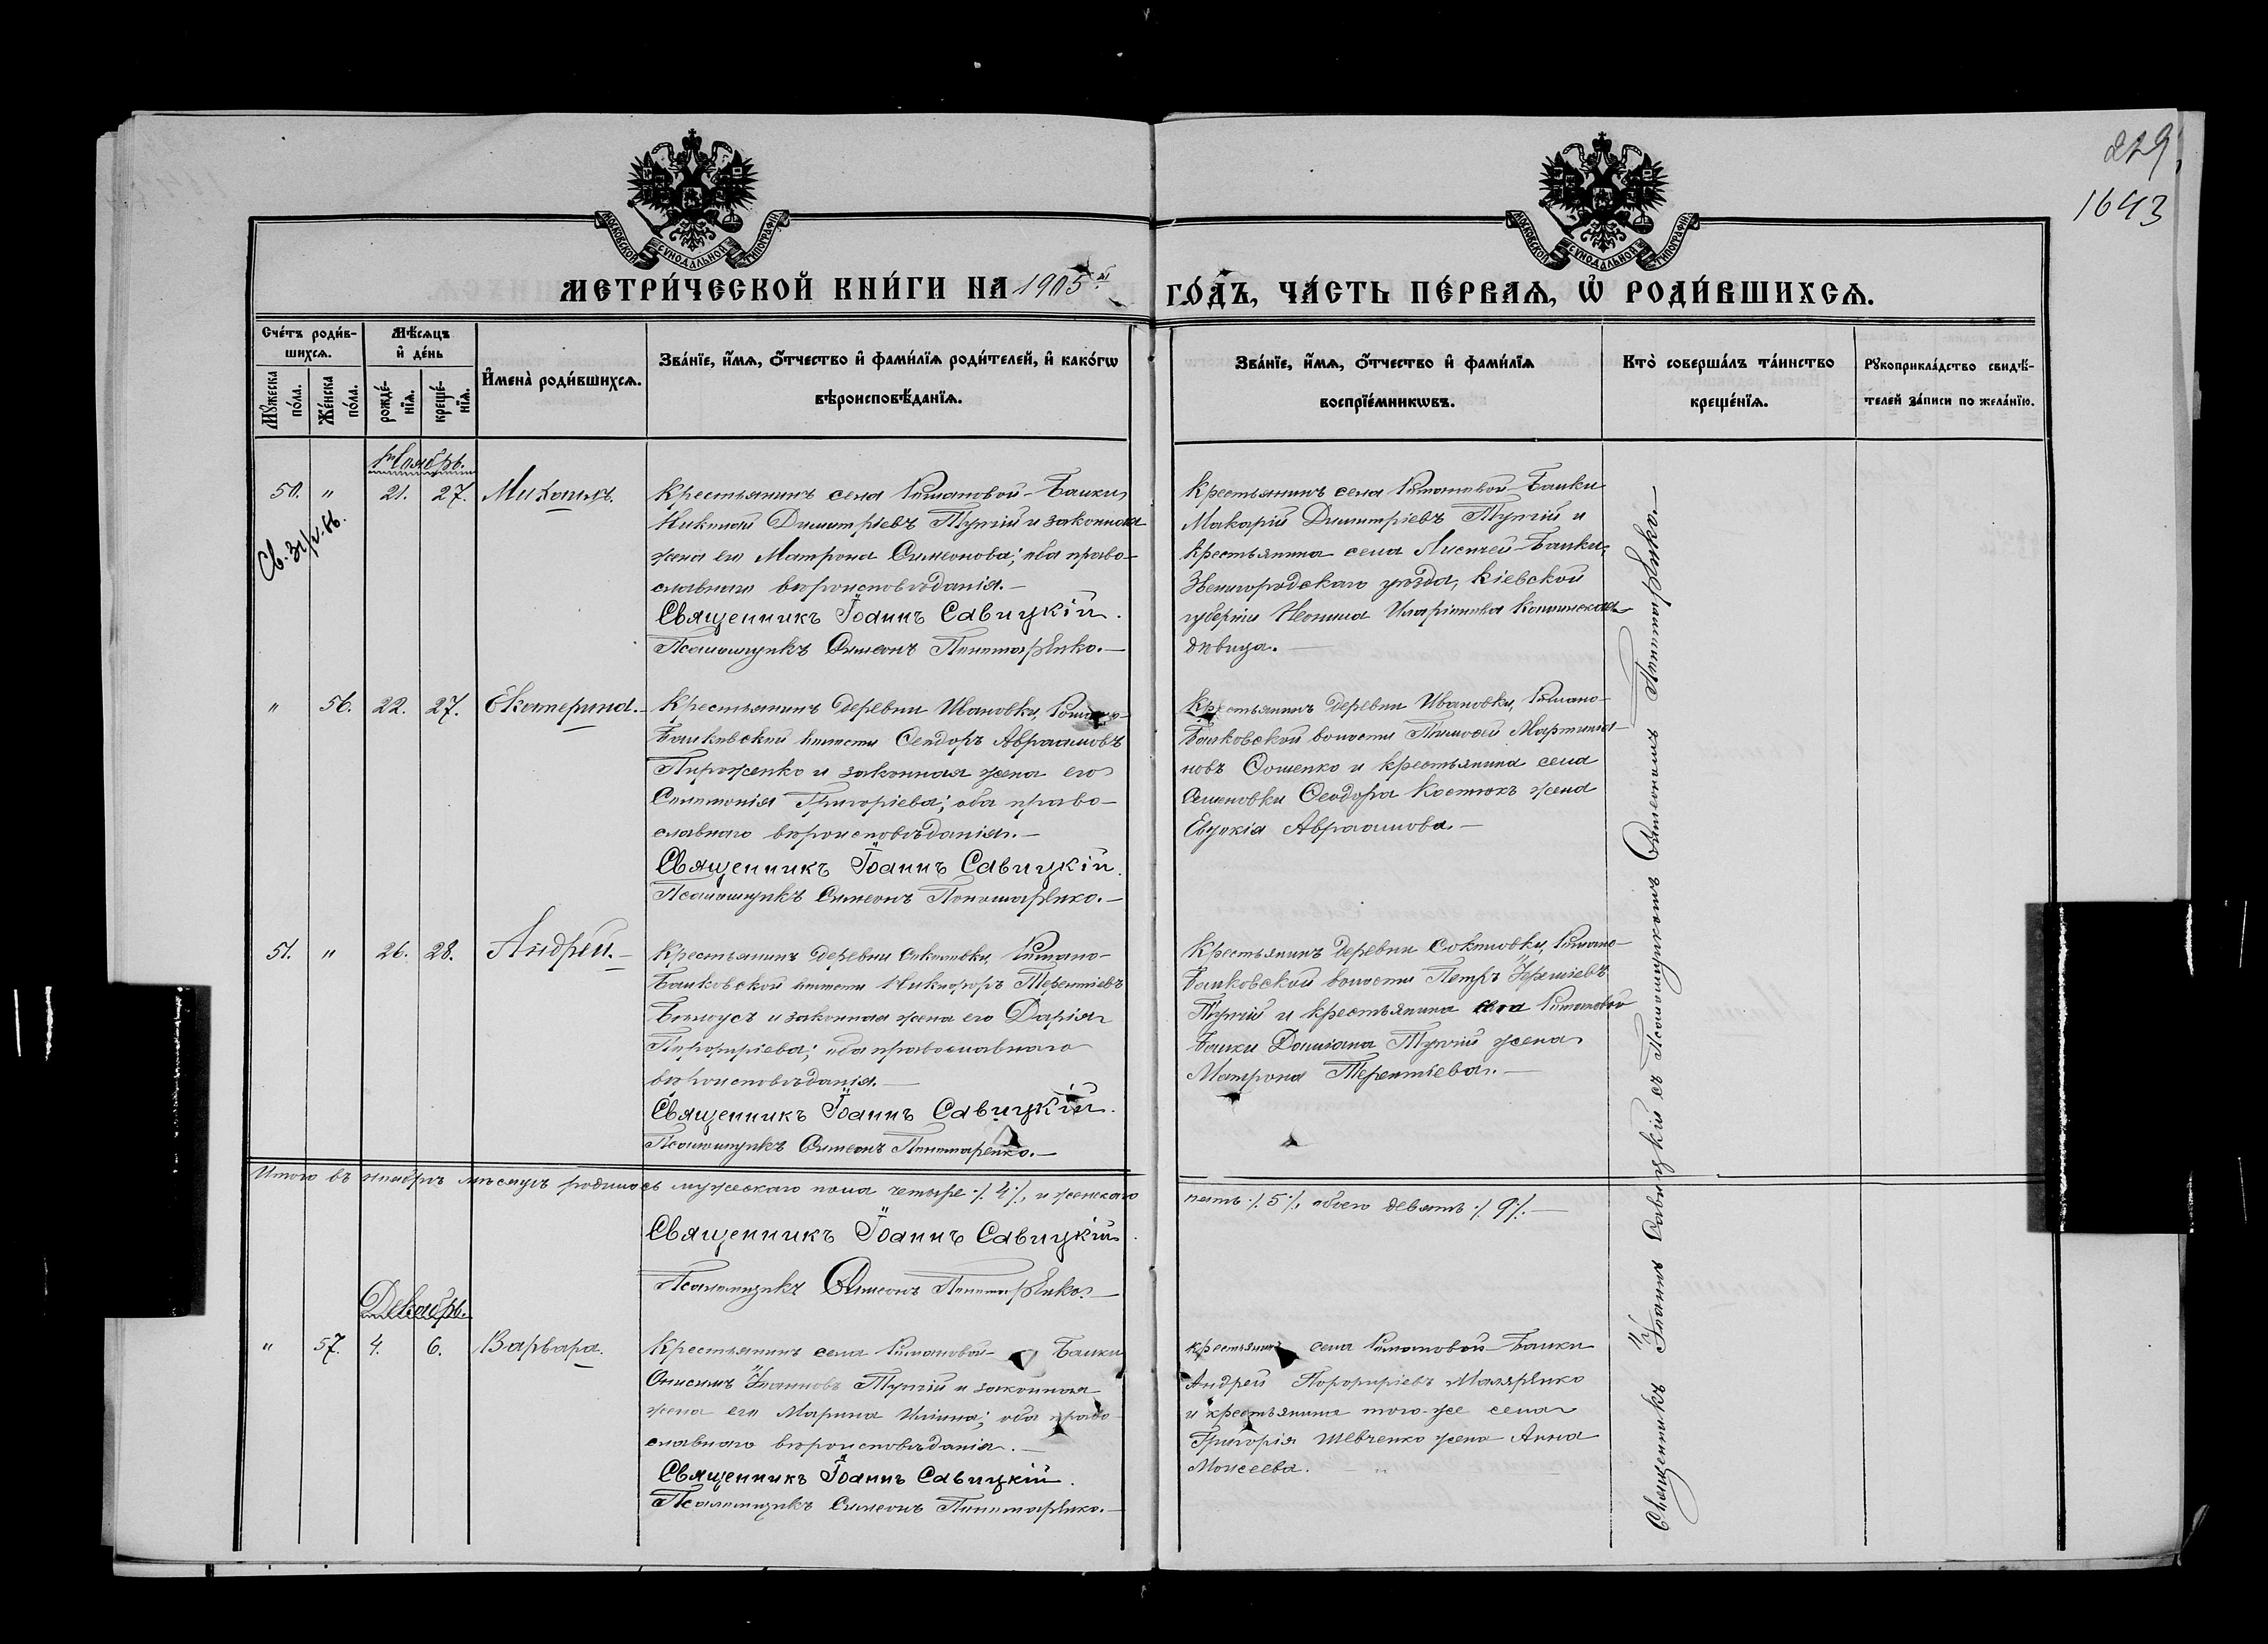 229
1643
МОСКОВСКОЙ СѴНОДАЛЬНОЙ ТИПОГРАФІИ
МОСКОВСКОЙ СѴНОДАЛЬНОЙ ТИПОГРАФІИ
МЕТРИ́ЧЕСКОЙ КНИ́ГИ НА 1905й ГО́ДЪ, ЧА́СТЬ ПЕ́РВАѦ, Ѡ҆ РОДИ́ВШИХСѦ.
Сче́тъ роди́в-
шихсѧ.
Мꙋ́жеска по́ла.
Же́нска по́ла.
Мѣ́сѧцъ
и҆ де́нь
рожде́-
нїѧ.
креще́-
нїѧ.
И҆мена̀ роди́вшихсѧ.
Зва́нїе, и҆́мѧ, ѻ҆́тчество и҆ фами́лїѧ роди́телей, и҆ како́гѡ
вѣроисповѣ́данїѧ.
Зва́нїе, и҆́мѧ, ѻ҆́тчество и҆ фами́лїѧ
воспрїе́мникѡвъ.
Кто̀ соверша́лъ та́инство
креще́нїѧ.
Рꙋкоприкла́дство свидѣ́-
телей за́писи по жела́нїю.
Ноябрь.
50. " 21. 27. Михаилъ.
Крестьянинъ села Романовой-Балки
Николай Димитріевъ Тупчій и законная
жена его Матрона Симеонова; оба право-
славнаго вѣроисповѣданія.-
Священникъ Іоаннъ Савицкій.
Псаломщикъ Симеонъ Пономаренко.-
Крестьянинъ села Романовой-Балки
Макарій Димитріевъ Тупчій и
крестьянина села Лисичей-Балки,
Звенигородскаго уѣзда, Кіевской
губерніи Иларіонова
дѣвица.-
" 56. 22. 27. Екатерина.-
Крестьянинъ деревни Ивановки, Романо-
Балковской волости Ѳеодоръ Авраамовъ
Пироженко и законная жена его
Григоріева; оба право-
славнаго вѣроисповѣданія.-
Священникъ Іоаннъ Савицкій.
Псаломщикъ Симеонъ Пономаренко.-
Крестьянинъ деревни Ивановки, Романо-
Балковской волости Тимоѳей Мартинiа-
новъ Ѳоменко и крестьянина села
Семеновки Ѳеодора Костюкъ жена
Евдокія Авраамова.-
51. " 26. 28. Андрей.-
Крестьянинъ деревни Соколовки, Романо-
Балковской волости Никифоръ Терентіевъ
Бѣлоусъ и законная жена его Дарія
Порфиріева; оба православнаго
вѣроисповѣданія.-
Священникъ Іоаннъ Савицкій.
Псаломщикъ Симеонъ Пономаренко.-
Крестьянинъ деревни Соколовки, Романо-
Балковской волости Петръ Іереміевъ
Тупчій и крестьянина села Романовой
Балки Даміана Тупчій жена
Матрона Терентіева.-
Итого въ ноябрѣ мѣсяцѣ родилось мужескаго пола четыре ./. 4 ./., и женскаго пять ./. 5 ./., обоего девять ./. 9 ./.-
Священникъ Іоаннъ Савицкій.
Псаломщикъ Симеонъ Пономаренко.-
Декабрь.
" 57. 4. 6. Варвара.
Крестьянинъ села Романовой- Балки
Онисимъ Іоанновъ Тупчій и законная
жена его Марина Иліина; оба право-
славнаго вѣроисповѣданія.-
Священникъ Іоаннъ Савицкій.
Псаломщикъ Симеонъ Пономаренко.-
крестьянинъ села Романовой-Балки
Андрей Порфиріевъ Маляренко
и крестьянина того-же села
Григорія Шевченко жена Анна
Моисеева.-
Священникъ Іоаннъ Савицкій съ Псаломщикомъ Симеономъ Пономаренко.-